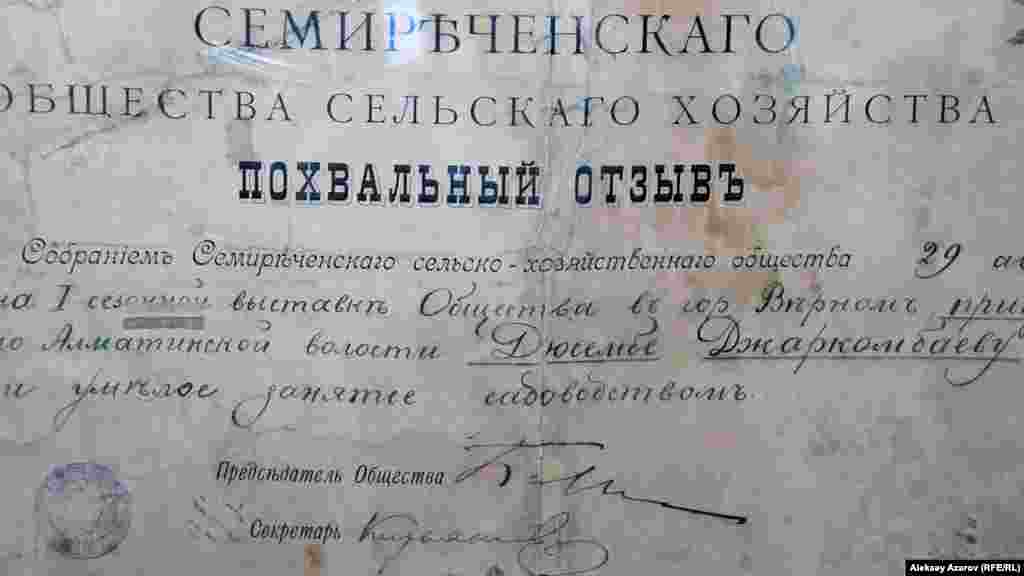 СЕМИРѢЧЕНСКАГО
ОБЩЕСТВА СЕЛЬСКАГО ХОЗЯЙСТВА
ПОХВАЛЬНЫЙ ОТЗЫВЪ
Собраніемъ Семирѣченскаго сельско-хозяйственнаго общества 29 ав
на I сезонной выставкѣ Общества въ гор Вѣрномъ при
Алматинской волости "Дюсембѣ Джаркомбаеву"
и умѣлое занятіе садоводствомъ.
Предсѣдатель Общества
Секретарь
Aleksey Azarov (RFE/RL)